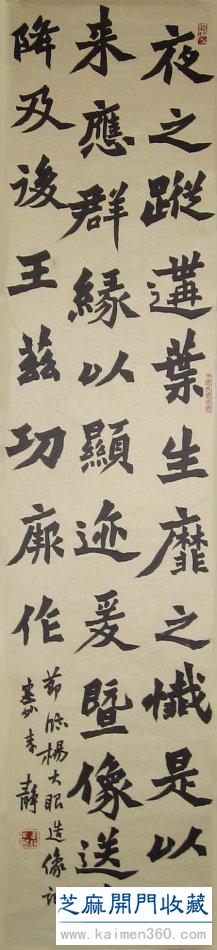 夜之蹤遘葉生靡之懺是以
来應群緣以顯迹爰暨像送
降及後王茲功厥作
節臨楊大眼造像記
靜
芝麻開門收藏
http://www.kaimen360.com/